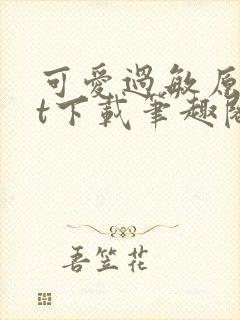 可愛過敏原
t下載筆趣閣
吾笠花